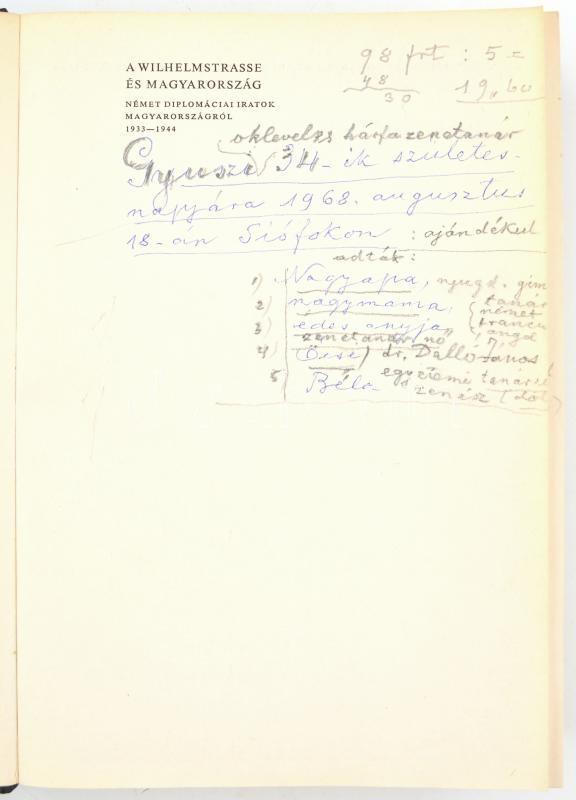 98 frt : 5 =
48
30
19,,60
A WILHELMSTRASSE
ÉS MAGYARORSZÁG
NÉMET DIPLOMÁCIAI IRATOK
MAGYARORSZÁGRÓL
1933—1944
okleveles hárfazenetanár
Gyuszi 34-ik születés-
napjára 1968. augusztus
18-án Siófokon : ajándékul
adták :
1) Nagyapa, nyugd. gim
tanár
2) nagymama, német
3) édes anyja, francia
angol
zenetanár nő
4) Öcsi) dr. Dalló János
egyetemi tanárs
5) Béla zenész